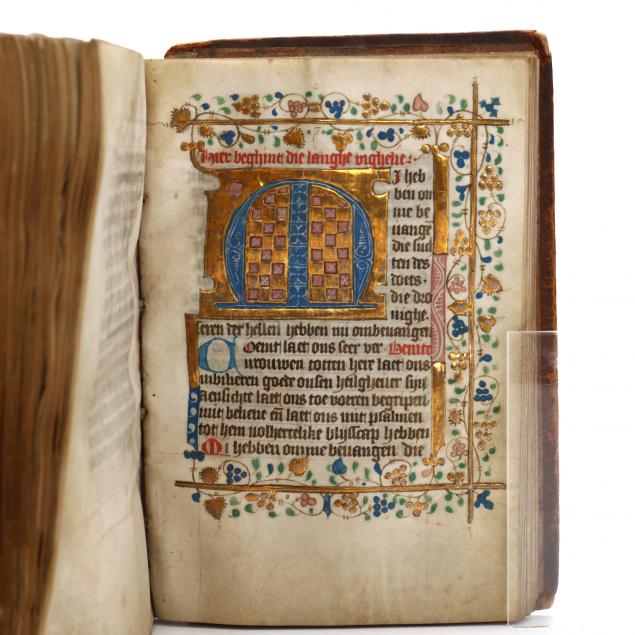 Hier beghint die langhe vighelie.
M I heb
ben om
me be
uange
die such
ten des
doets.
die dro
nighe.
seren der hellen hebben mi ombeuangen
Coemt laet ons seer ver Uenite
vrouwen totten here laet ons
iubilieren gode onsen heilgheuer sijn
aensichte laet ons toe voeren begripen
mit beliene en̄ laet ons mit psalmen
tot hem volhertelike blijsscap hebben
Mi hebben omme beuangen die